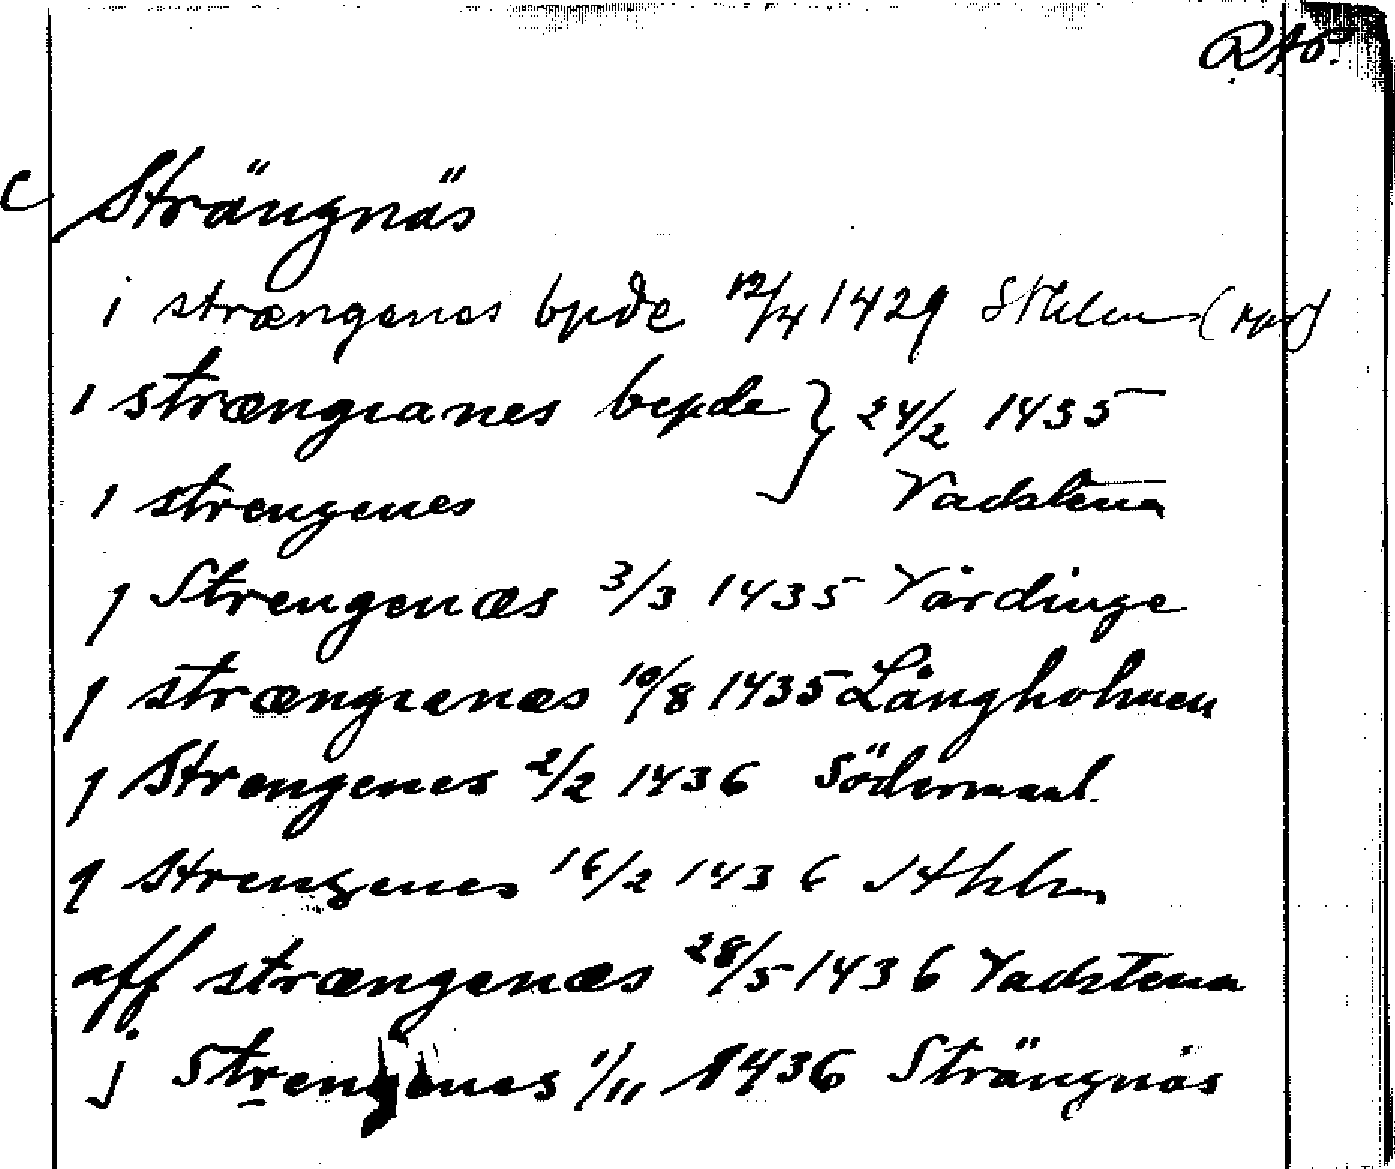 RAÖ.
C Strängnäs
i strængenes bpde 12/4 1429 Sthlm (
i strængianes bepde } 24/2 1435
i strengenes Vadstena
j Strengenæs 3/3 1435 Vårdinge
j strængienæs 10/8 1435 Långholmen
j Strengenes 2/2 1436 Södermanl.
j strengenes 16/2 1436 Sthlm
aff strængenæs 28/5 1436 Vadstena
j Strengenes 1/11 1436 Strängnäs